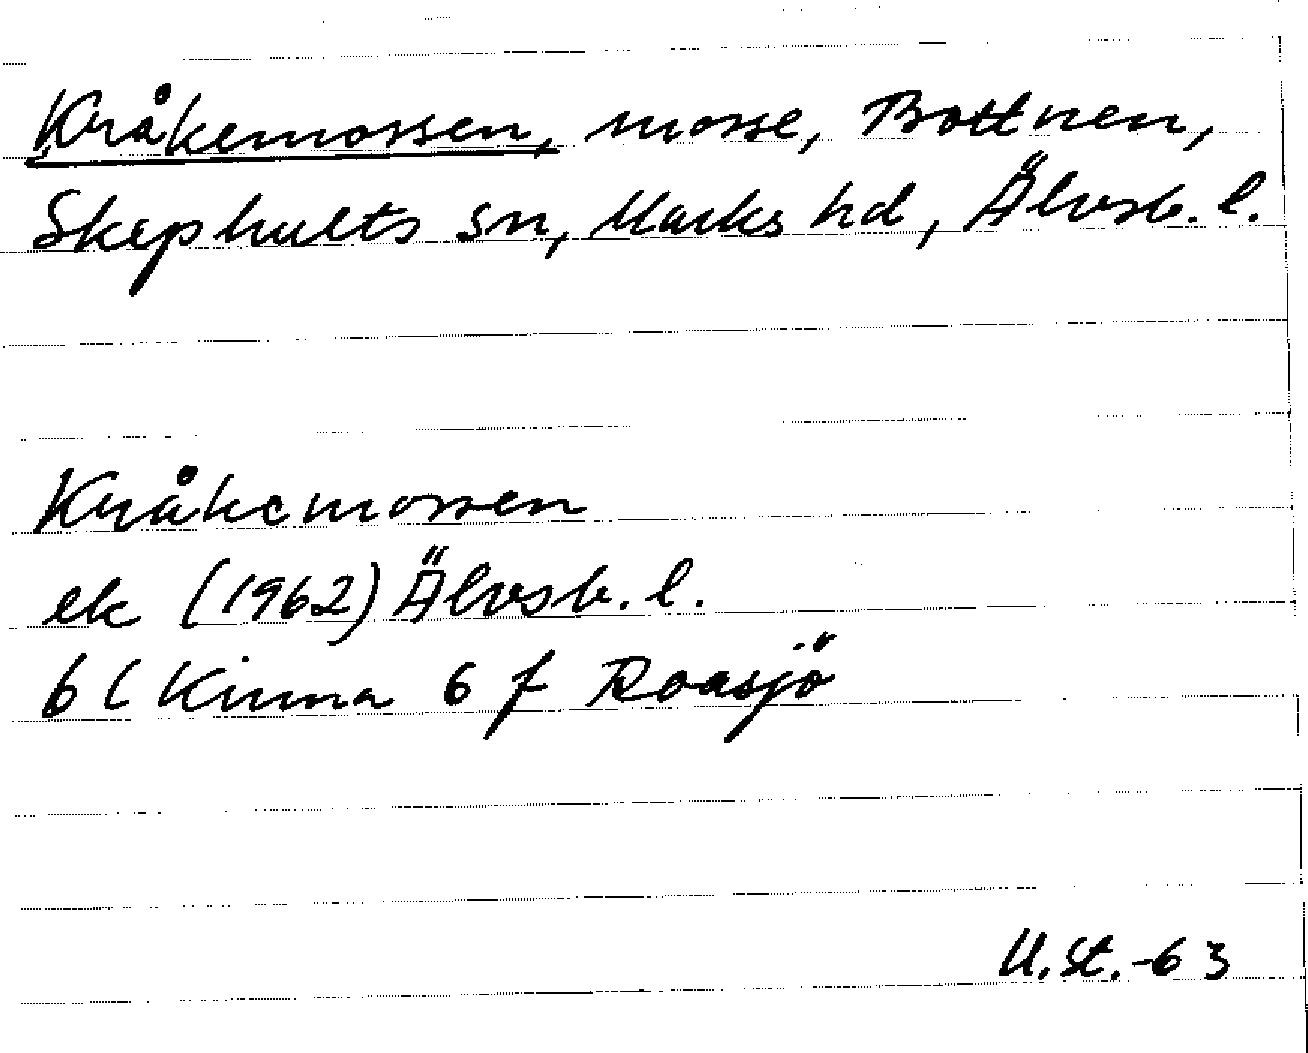 Kråkemossen, mosse, Bottnen,
Skephults sn, Marks hd, Älvsb. l.
Kråkemossen
ek (1962) Älvsb. l.
6 C Kinna 6 f Roasjö
U.St.-63